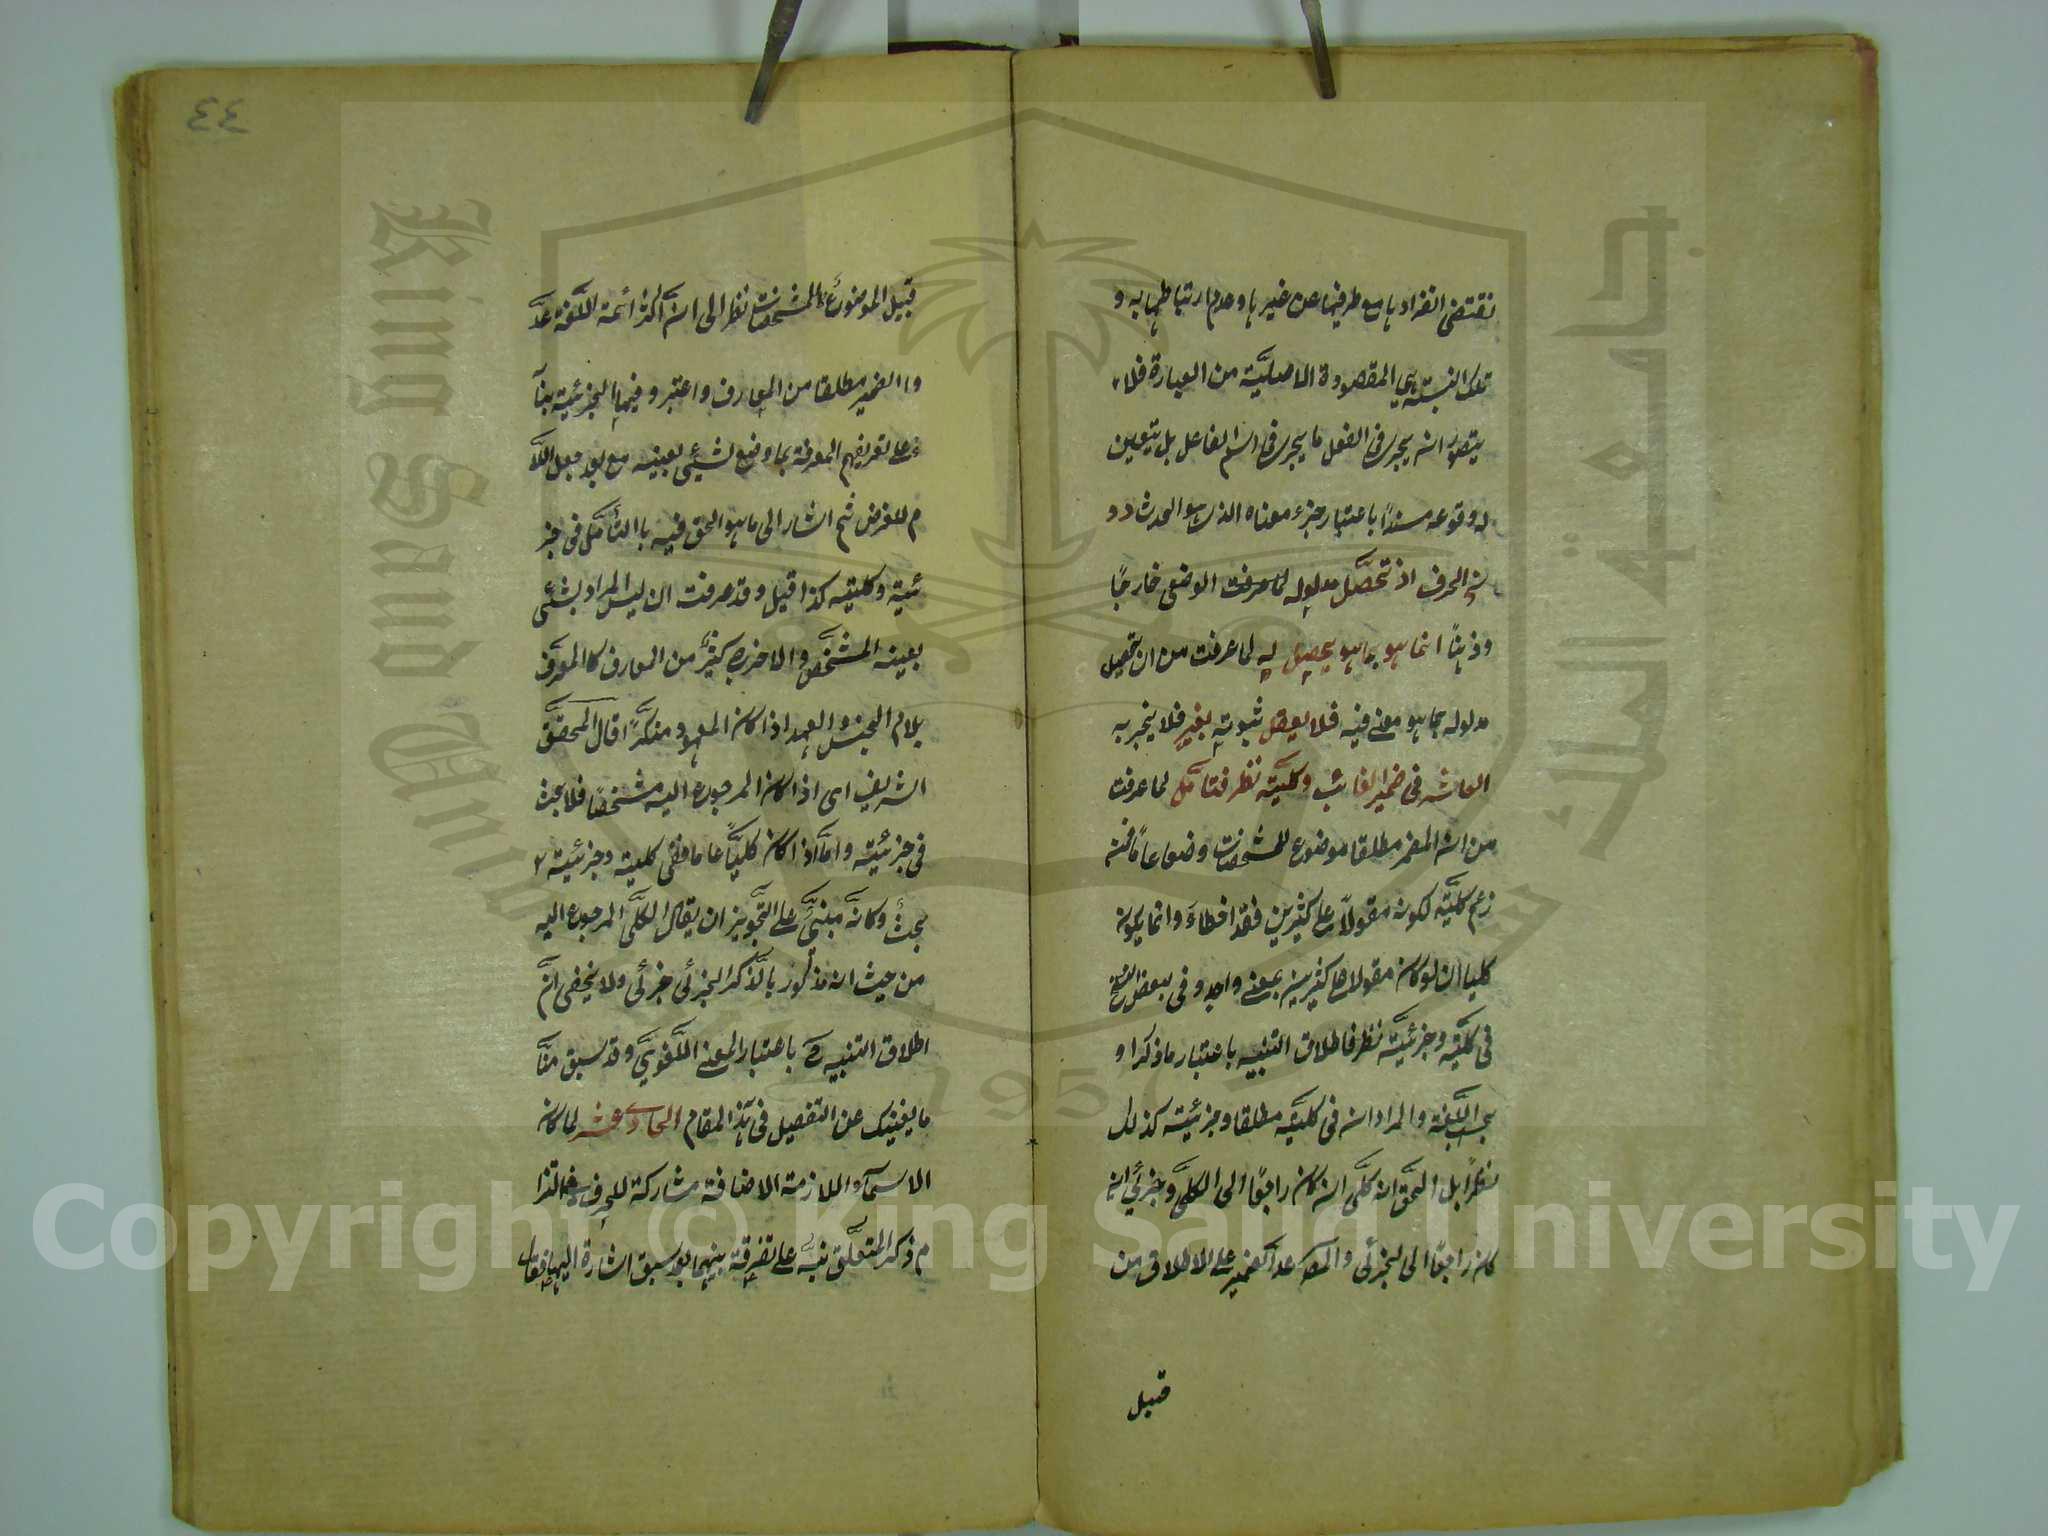 نقتضى انفرادها مع طرفيها عن غيرها وعدم ارتباطها به و
تلك النسبة هي المقصودة الاصليّة من العبارة فلا
يتصوّر ان يجرى فى الفعل ما يجرى فى اسم الفاعل بل يتعين
له وقوعه مسندًا باعتبار جزء معناه الذى هو الحدث دو
ن الحرف اذ تحصّل مدلوله لما عرفت الوضعى خارجًا
وذهنًا انما هو بما هو يحصل له لما عرفت من ان تحصيل
مدلوله بما هو معنى فيه فلا يعقل ثبوته لغيره فلا يخبر به
العاشر فى ضمير الغائب وكليّته نظر فتأمّل لما عرفت
من ان المضمر مطلقا موضوع للمشخصات وضعا عامًا فمن
زعم كليّته لكونه مقولًا على كثيرين فقد اخطاء وانما يكون
كليا ان لو كان مقولا على كثيرين بمعنى واحد وفى بعض النسخ
فى كليّته وجزئيّته نظر فاطلاق التنبيه باعتبار ما ذكر او
بحسب اللغة والمراد ان فى كليّته مطلقا وجزئيته كذلك
نظرًا بل الحق انه كلّى ان كان راجعًا الى الكلّى وجزئى ان
كان راجعًا الى الجزئى والمص عدّ الضمير على الاطلاق من
قبيل
٤٤
قبيل الموضوع للمشخصات نظر الى ان اكثر ائمة اللّغة عدّ
وا الضمير مطلقا من المعارف واعتبروفيها الجزئية بنآ
ء على تعريفهم المعرفة بما وضع لشيئ بعينه مع بعد جعل اللّا
م للغرض ثم اشار الى ما هو الحق فيه باالتأمّل فى جز
ئيته وكليته كذا قيل وقد عرفت ان ليس المراد بشئ
بعينه المشخّص والا خرج كثيرٌ من المعارف كالمعرّف
بلام الجنس والعهد اذا كان المعهود منكّرًا قال المحقّق
الشريف اى اذا كان المرجوع اليه مشخصًا فلا بحث
فى جزئيّته وامّا اذا كان كليًّا عاما ففى كليته وجزئيته
بحث وكانّه مبنىّ على التّجويز ان يقال الكلّى المرجوع اليه
من حيث انه مذكور بالّذكر الجزئى جزئى ولا يخفى انّ
اطلاق التنبيه ح باعتبار المعنى اللّغوىّ وقد سبق منّا
ما يغنيك عن التفصيل فى هذا المقام الحادى عشر لما كان
الاسمآء اللازمة الاضافة مشاركة للحرف فى التزا
م ذكر المتعلّق نبّه على تفرقة بينهما بعد سبق اشارة اليها فقال